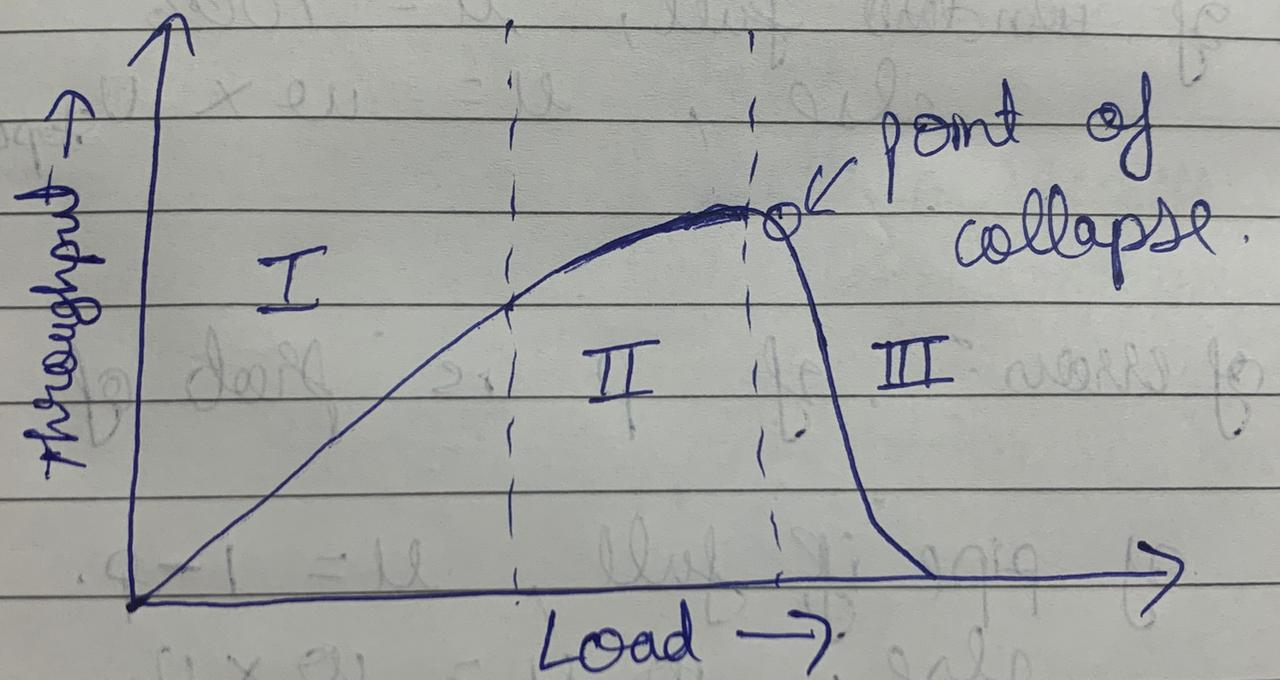 Throughput →
I
II
III
point of
collapse.
Load →